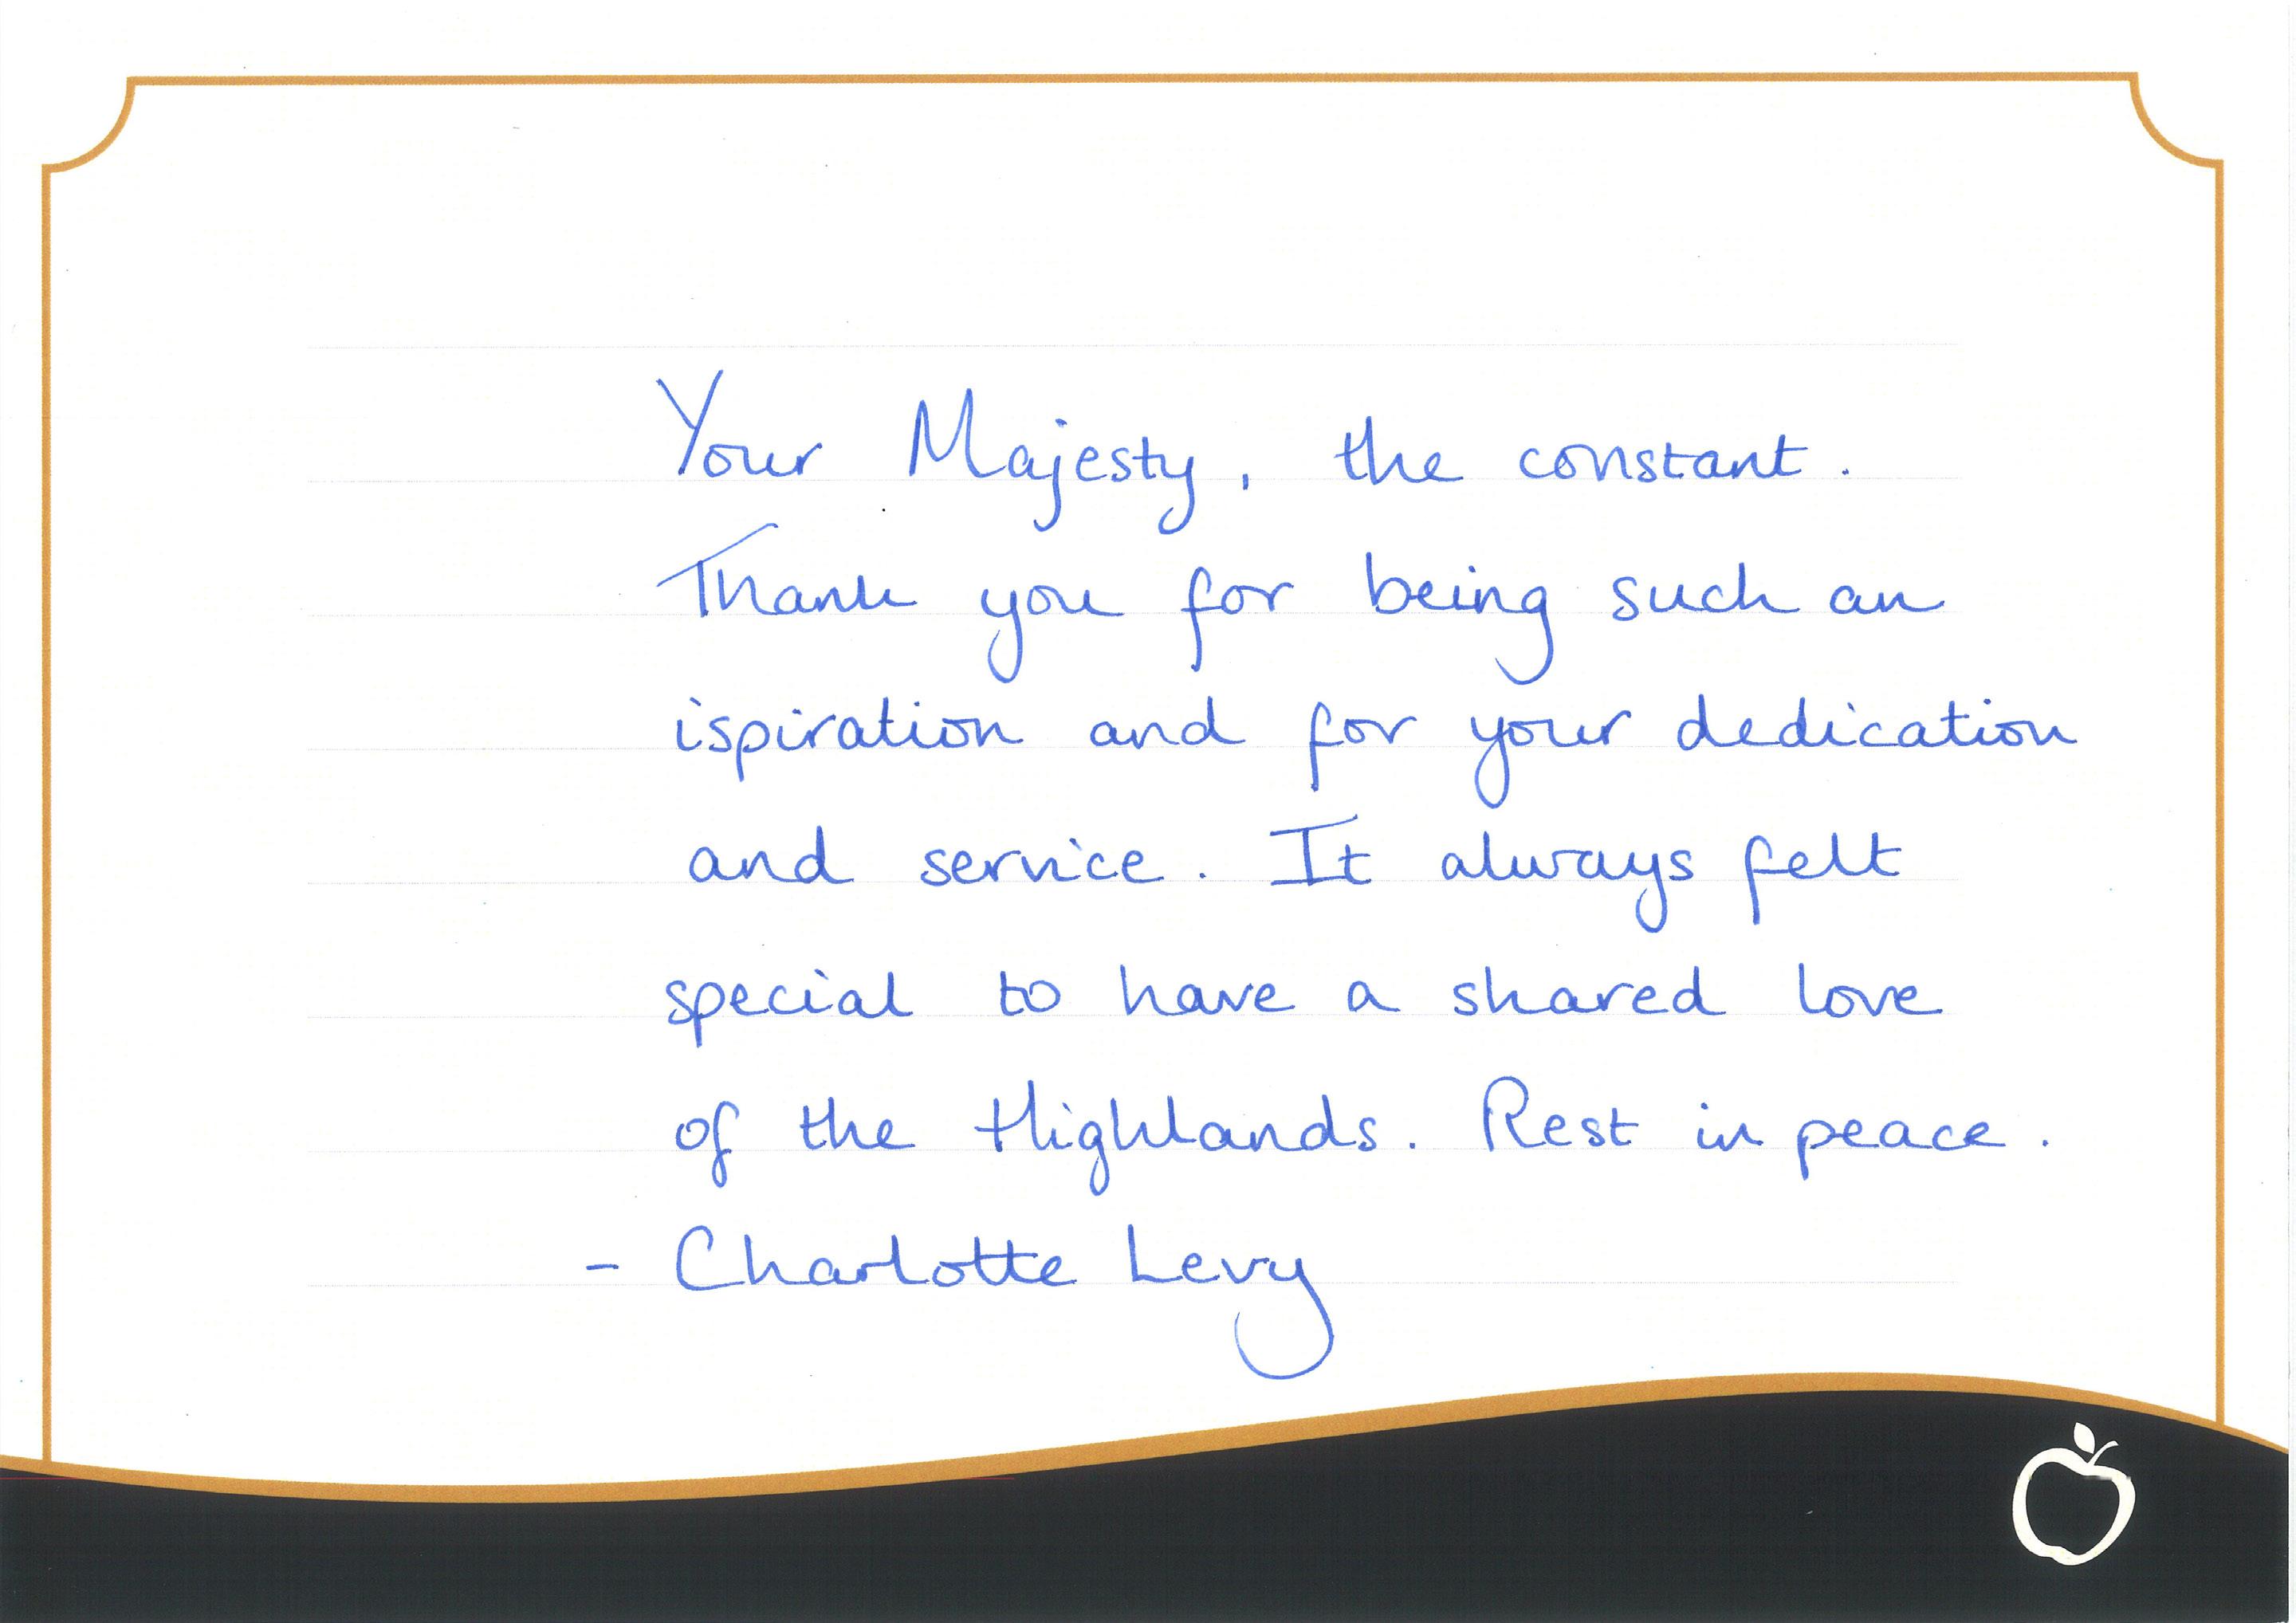 Your Majesty, the constant.
Thank you for being such an
ispiration and for your dedication
and service. It always felt
special to have a shared love
of the Highlands. Rest in peace.
- Charlotte Levy